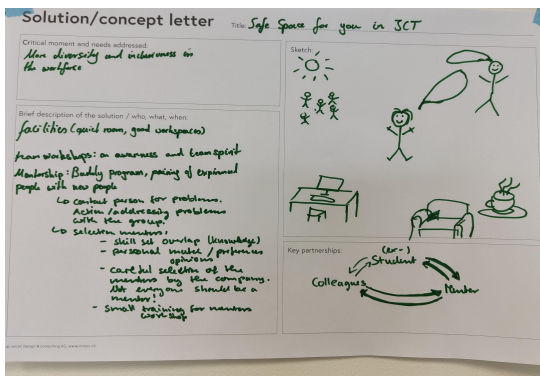 Solution/concept letter
Title: Safe Space for you in ICT
Critical moment and needs addressed:
More diversity and inclusiveness in
the workforce
Brief description of the solution / who, what, when:
facilities (quiet room, good workspaces)
team workshops: on awareness and team spirit
Mentorship: Buddy program, pairing of
people with new people
↳ contact person for problems.
Action / addressing problems
with the group.
↳ selection mentors:
- skill set overlap (knowledge)
- personal / preferences
opinions
- careful selection of the
mentors by the company.
Not everyone should be a
mentor!
- small training for mentors
workshop
Sketch:
Key partnerships:
(ex-)
Student
Colleagues
Mentor